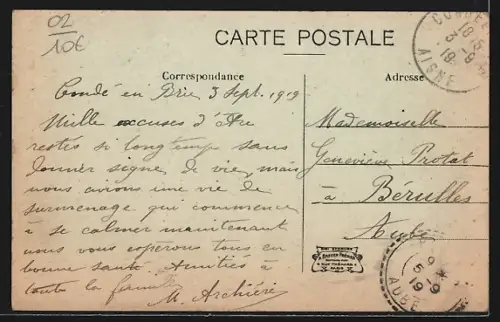 02
10€
CARTE POSTALE
Correspondance
Adresse
Condé en Brie 3 Sept. 1919
Mille excuses d'être
restés si longtemps sans
donner signe de vie, mais
nous avions une vie de
surmenage qui commence
à se calmer maintenant
nous vous espérons tous en
bonne santé. Amitiés à
toute la famille
M. Archiéri
Mademoiselle
Geneviève Protat
à Bérulles
Aube
18 15
3 -9
19
AISNE
9 -9
19
AUBE